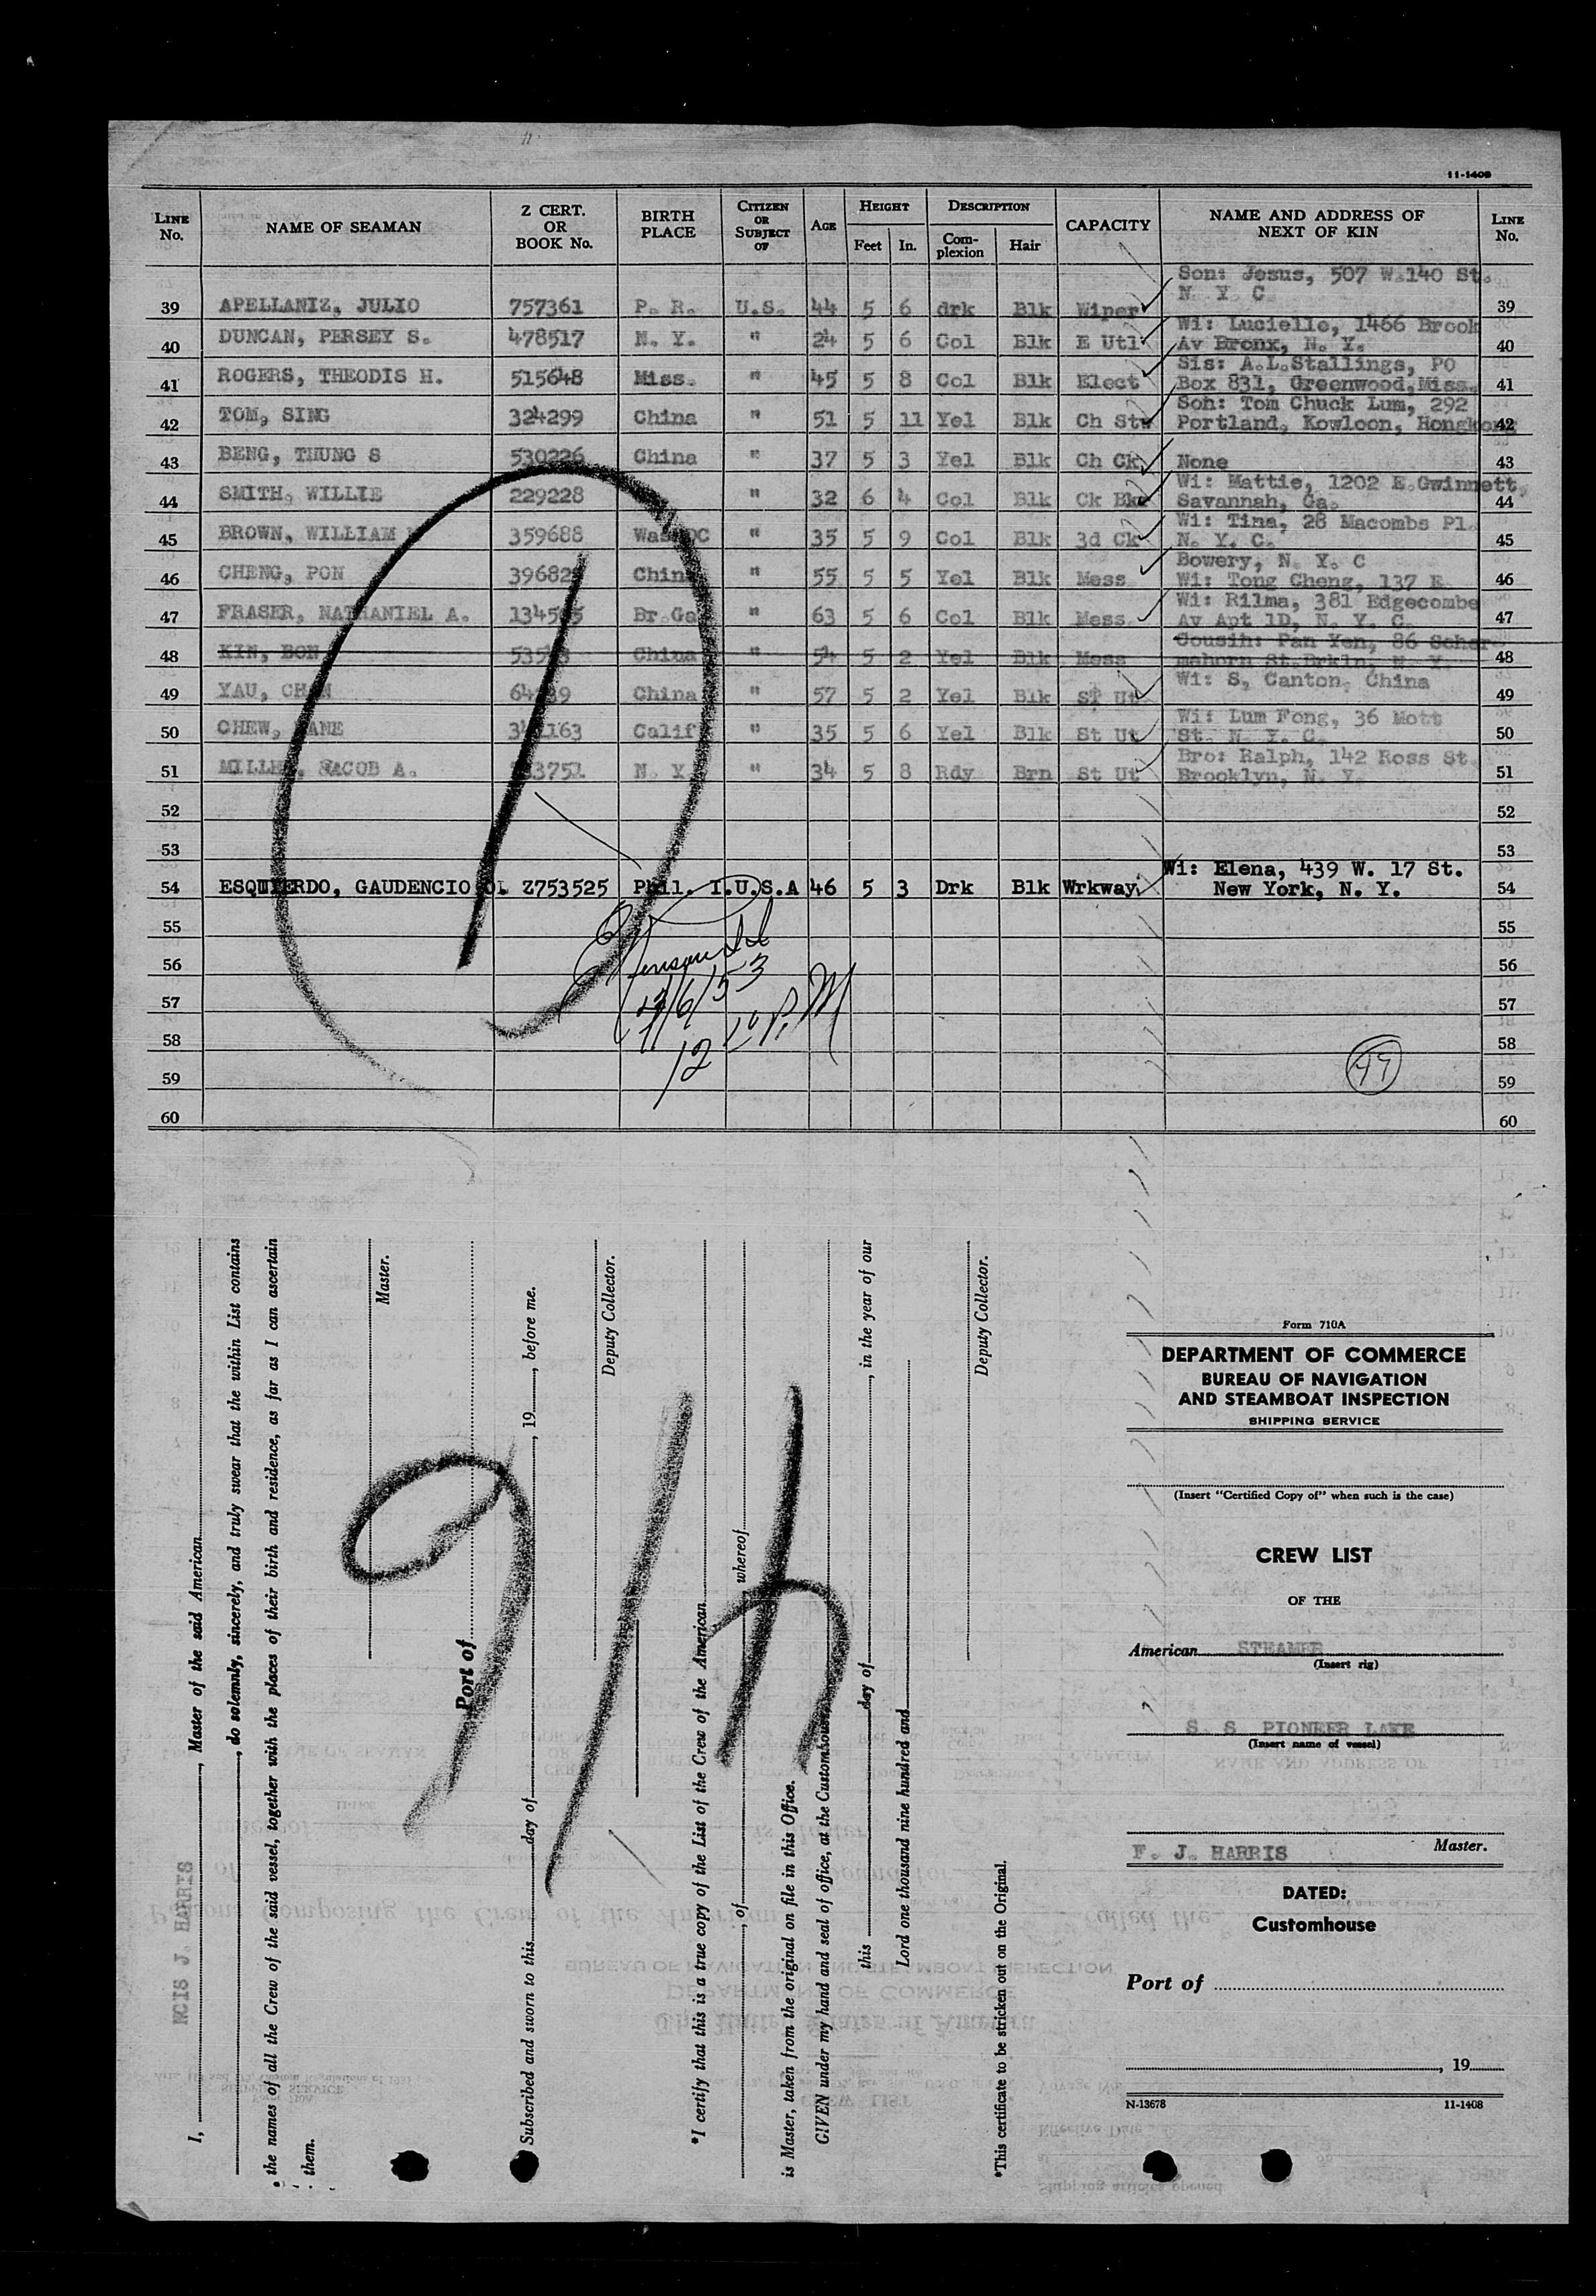 11-1408
LINE No. NAME OF SEAMAN Z CERT. OR BOOK No. BIRTH PLACE CITIZEN OR SUBJECT OF AGE HEIGHT Feet In. DESCRIPTION Complexion Hair CAPACITY NAME AND ADDRESS OF NEXT OF KIN LINE No.
Son: Jesus, 507 W.140 St.
39 APELLANIZ, JULIO 757361 P. R. U.S. 44 5 6 drk Blk Wiper N. Y. C. 39
Wi: Lucielle, 1466 Brook
40 DUNCAN, PERSEY S. 478517 N. Y. " 24 5 6 Col Blk E Utl Av Bronx, N. Y. 40
Sis: A.L.Stallings, PO
41 ROGERS, THEODIS H. 515648 Miss. " 45 5 8 Col Blk Elect Box 831, Greenwood,Miss. 41
Soh: Tom Chuck Lum, 292
42 TOM, SING 324299 China " 51 5 11 Yel Blk Ch Std Portland, Kowloon, Hongkong 42
43 BENG, THUNG S 530226 China " 37 5 3 Yel Blk Ch Ck None 43
Wi: Mattie, 1202 E.Gwinnett,
44 SMITH, WILLIE 229228 " 32 6 4 Col Blk Ck Bkr Savannah, Ga. 44
Wi: Tina, 28 Macombs Pl.
45 BROWN, WILLIAM 359688 Wash DC " 35 5 9 Col Blk 3d Ck N. Y. C. 45
Bowery, N. Y. C
46 CHENG, PON China " 55 5 5 Yel Blk Mess Wi: Tong Cheng, 137 E 46
Wi: Rilma, 381 Edgecombe
47 FRASER, NATHANIEL A. Br.Ga " 63 5 6 Col Blk Mess Av Apt 1D, N. Y. C. 47
Cousin: Pan Yen, 86 Scher-
48 KIN, BON China " 54 5 2 Yel Blk Mess mehorn St.Brkln, N. Y. 48
Wi: S, Canton, China
49 YAU, CHAN China " 57 5 2 Yel Blk ST Ut 49
Wi: Lum Fong, 36 Mott
50 CHEW, Calif " 35 5 6 Yel Blk St Ut St. N. Y. C. 50
Bro: Ralph, 142 Ross St.
51 MILLER, JACOB A. N. Y. " 34 5 8 Rdy Brn St Ut Brooklyn, N. Y. 51
52 52
53 53
Wi: Elena, 439 W. 17 St.
54 ESQUIERDO, GAUDENCIO Z753525 Phil. I.U.S.A 46 5 3 Drk Blk Wrkway. New York, N. Y. 54
55 55
56 56
57 57
58 58
59 59
60 60
12 P.M
I, , Master of the said American
NCIS J. HARRIS
, do solemnly, sincerely, and truly swear that the within List contains
the names of all the Crew of the said vessel, together with the places of their birth and residence, as far as I can ascertain
them.
Master.
Port of
Subscribed and sworn to this day of , 19 , before me.
Deputy Collector.
*I certify that this is a true copy of the List of the Crew of the American
, of , whereof
is Master, taken from the original on file in this Office.
GIVEN under my hand and seal of office, at the Customhouse,
this day of , in the year of our
Lord one thousand nine hundred and
Deputy Collector.
*This certificate to be stricken out on the Original.
Form 710A
DEPARTMENT OF COMMERCE
BUREAU OF NAVIGATION
AND STEAMBOAT INSPECTION
SHIPPING SERVICE
(Insert "Certified Copy of" when such is the case)
CREW LIST
OF THE
American STEAMER
(Insert rig)
S. S PIONEER LAKE
(Insert name of vessel)
F. J. HARRIS Master.
DATED:
Customhouse
Port of
, 19
N-13678 11-1408